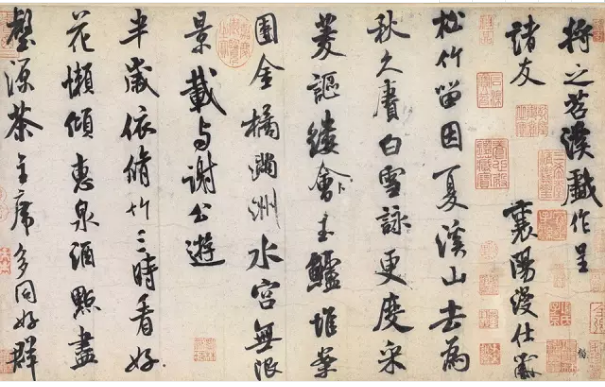 將之苕溪戲作呈
諸友　襄陽漫仕黻
松竹留因夏溪山去為
秋久賡白雪詠更度采
菱謳縷會玉鱸堆案
團金橘滿洲水宮無限
景載与謝公遊
半歲依脩竹三時看好
花懶傾惠泉酒點盡
壑源茶主席多同好群